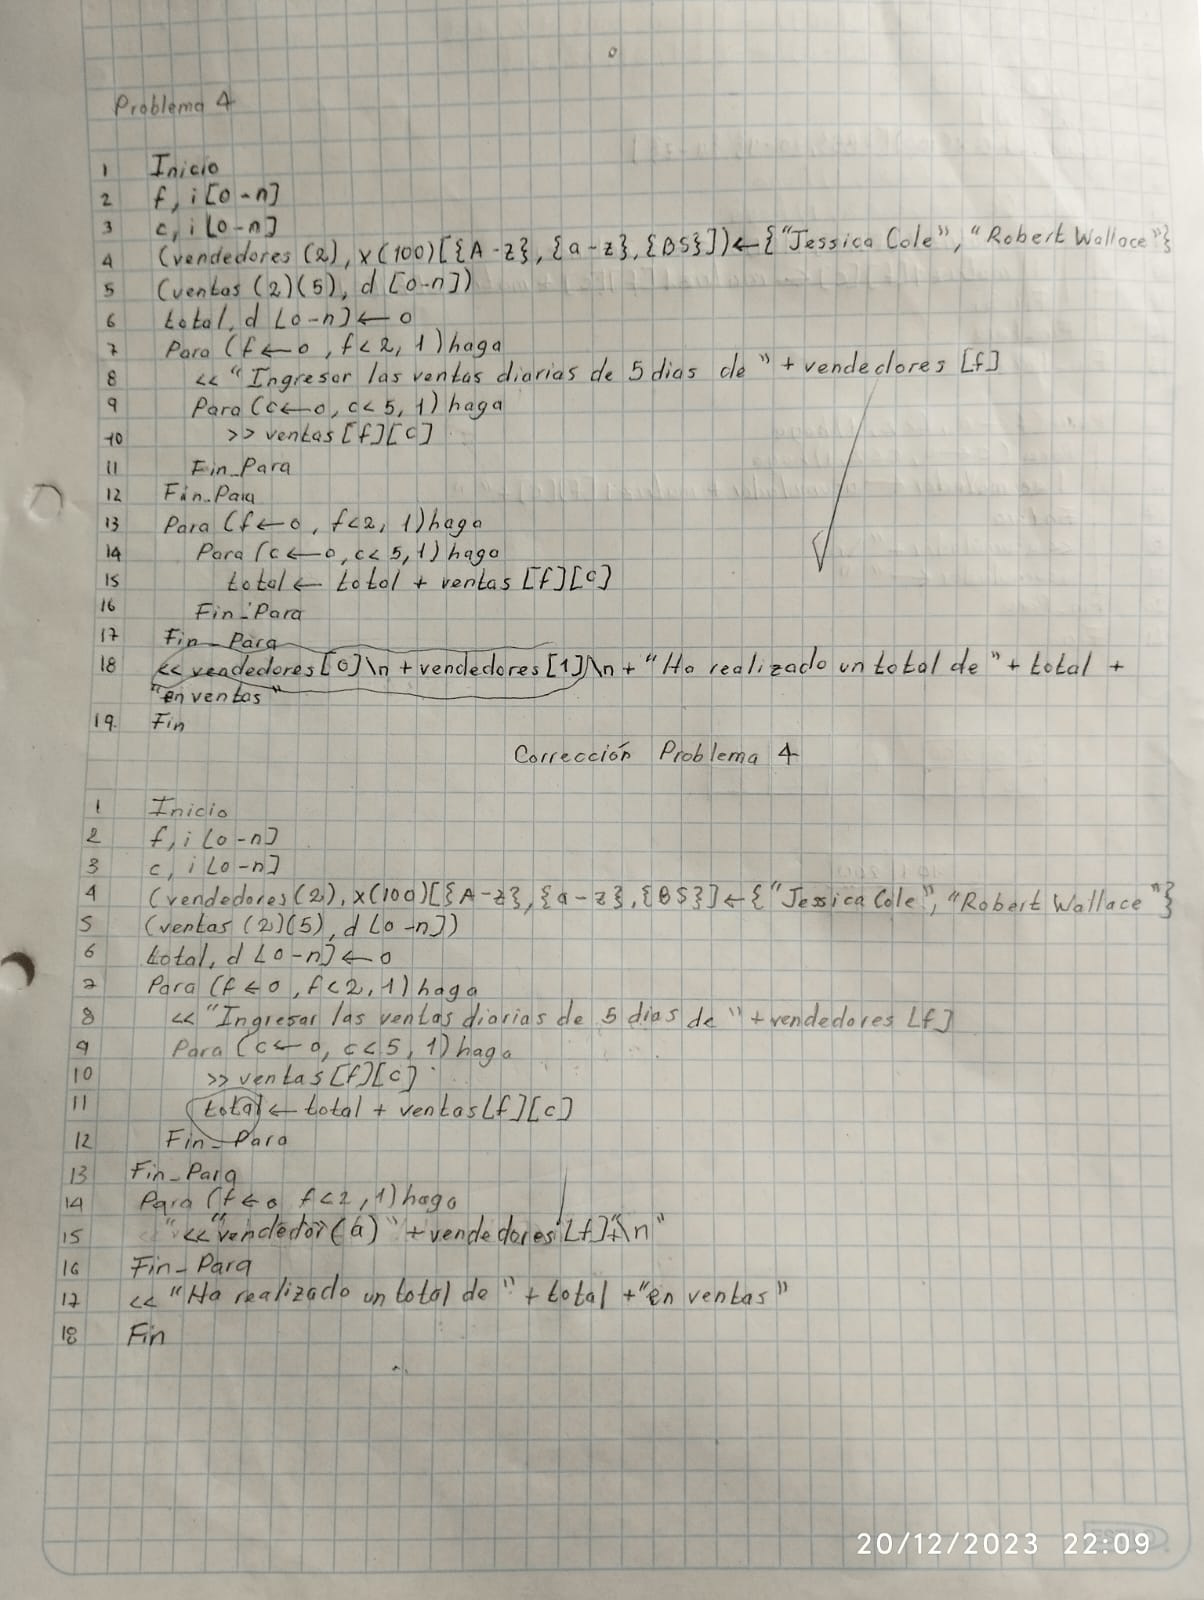 Problema 4
1 Inicio
2 f, i [0-n]
3 c, i [0-n]
4 (vendedores (2), x(100)[{A-z}, {a-z}, {BS}])←{"Jessica Cole", "Robert Wallace"}
5 (ventas (2)(5), d [0-n])
6 total, d [0-n]←0
7 Para (f←0, f<2, 1) haga
8 << "Ingresar las ventas diarias de 5 dias de " + vendedores [f]
9 Para (c←0, c<5, 1) haga
10 >> ventas [f][c]
11 Fin_Para
12 Fin_Para
13 Para (f←0, f<2, 1) haga
14 Para (c←0, c<5, 1) haga
15 total← total + ventas [f][c]
16 Fin_Para
17 Fin_Para
18 << vendedores[0]\n + vendedores [1]\n + "Ha realizado un total de " + total +
"en ventas"
19. Fin
Corrección Problema 4
1 Inicio
2 f, i [0-n]
3 c, i [0-n]
4 (vendedores(2), x(100)[{A-z}, {a-z}, {BS}]←{"Jessica Cole", "Robert Wallace"}
5 (ventas (2)(5), d [0-n])
6 total, d [0-n]←0
7 Para (f←0, f<2, 1) haga
8 << "Ingresar las ventas diarias de 5 dias de " + vendedores [f]
9 Para (c←0, c<5, 1) haga
10 >> ventas [f][c]
11 total← total + ventas[f][c]
12 Fin_Para
13 Fin_Para
14 Para (f←0 f<2, 1) haga
15 <<"vendedor(a)" + vendedores [f]+"\n"
16 Fin_Para
17 << "Ha realizado un total de " + total +"en ventas"
18 Fin
20/12/2023 22:09